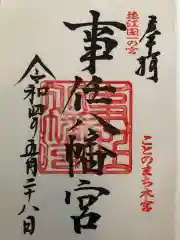 奉拝
遠江国一の宮
事任八幡宮
ことのまち八幡宮
令和四年五月二十八日